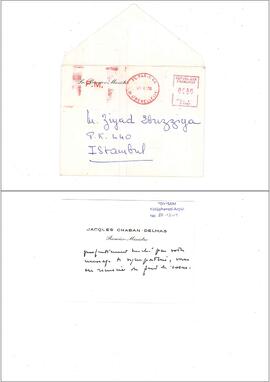 Le Premier Ministre
P.M.
RÉPUBLIQUE
FRANÇAISE
M. Ziyad Ebuzziya
P.K. 440
Istanbul
JACQUES CHABAN-DELMAS
Premier Ministre
profondément touché par votre
message de sympathie, vous
en remercie du fond du coeur.